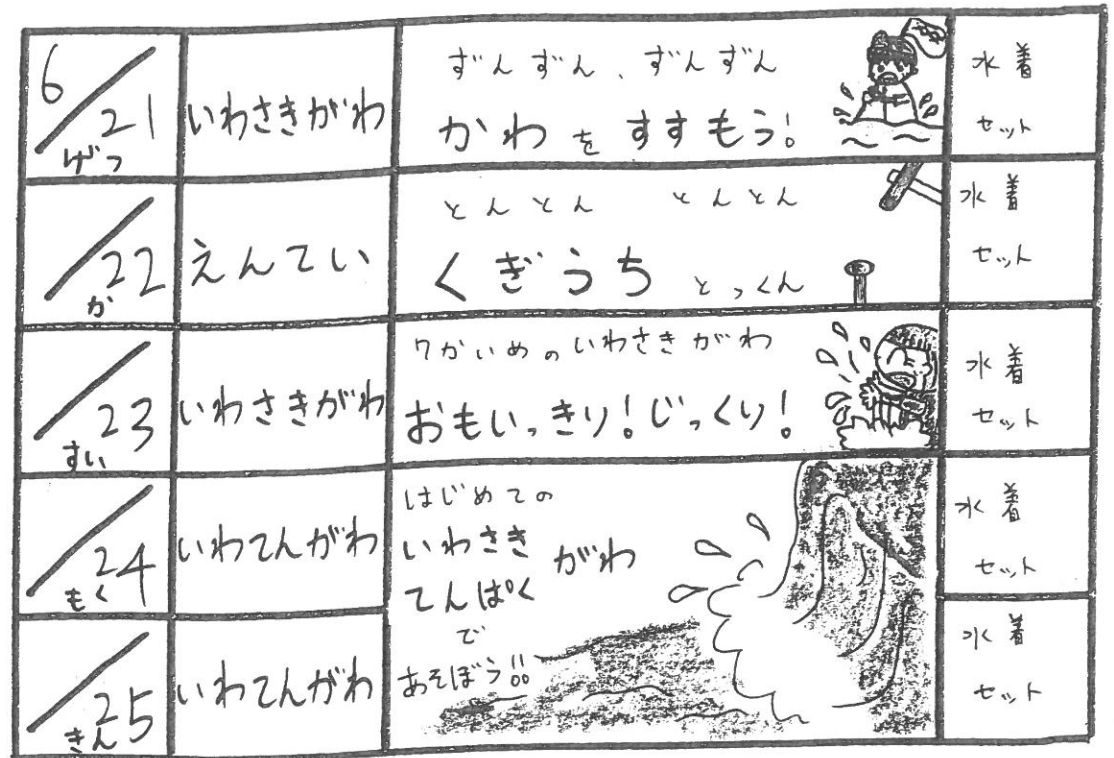 6/21
げつ
いわさきがわ
ずんずん、ずんずん
かわをすすもう!
水着
セット
/22
か
えんてい
とんとん とんとん
くぎうちとっくん
水着
セット
/23
すい
いわさきがわ
7かいめのいわさきがわ
おもいっきり!じっくり!
水着
セット
/24
もく
いわてんがわ
はじめての
いわさき
がわ
てんぱく
で
あそぼう!!
水着
セット
/25
きん
いわてんがわ
水着
セット